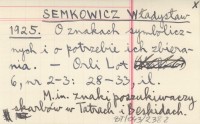 SEMKOWICZ Władysław
1925. O znakach symbolicz-
nych i o potrzebie ich zbiera-
nia. — Orli Lot
6, nr 2-3: 28-33, il.
M.in. znaki poszukiwaczy
skarbów w Tatrach i Beskidach.